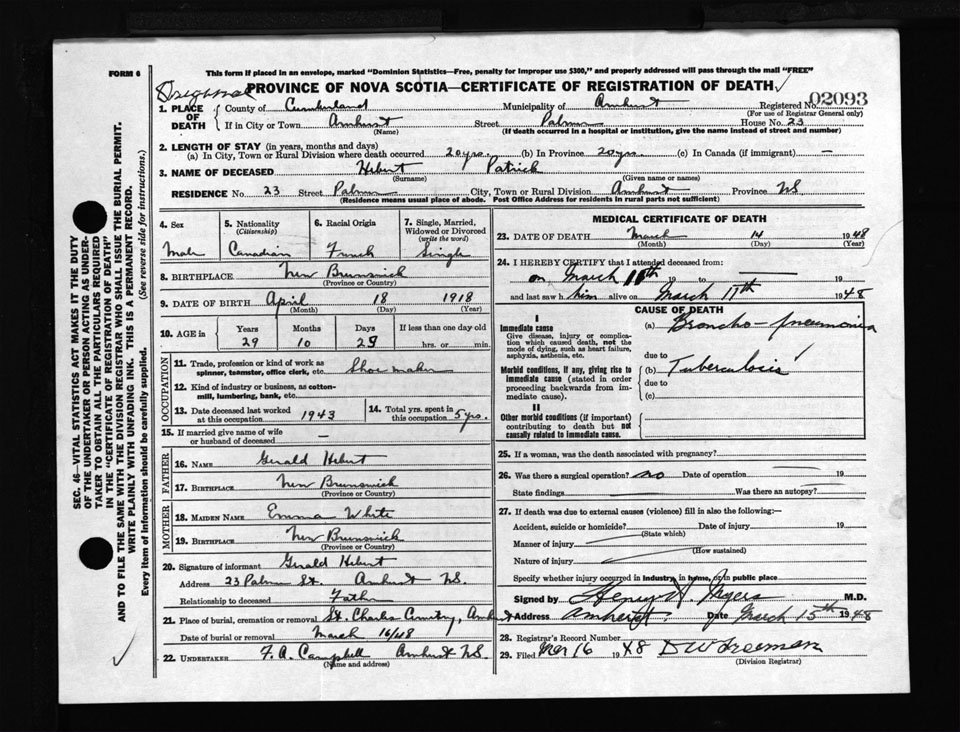 FORM 6
This form if placed in an envelope, marked "Dominion Statistics—Free, penalty for improper use $300," and properly addressed will pass through the mail "FREE"
PROVINCE OF NOVA SCOTIA—CERTIFICATE OF REGISTRATION OF DEATH
1. PLACE OF DEATH
County of Cumberland Municipality of Amherst Registered No. 02093
(For use of Registrar General only)
If in City or Town Amherst Street Palmer House No. 23
(Name) (If death occurred in a hospital or institution, give the name instead of street and number)
2. LENGTH OF STAY (in years, months and days)
(a) In City, Town or Rural Division where death occurred 20 yrs. (b) In Province 20 yrs. (c) In Canada (if immigrant) —
3. NAME OF DECEASED Hebert Patrick
(Surname) (Given name or names)
RESIDENCE No. 23 Street Palmer City, Town or Rural Division Amherst Province NS
(Residence means usual place of abode. Post Office Address for residents in rural parts not sufficient)
4. Sex 5. Nationality (Citizenship) 6. Racial Origin 7. Single, Married, Widowed or Divorced (write the word)
Male Canadian French Single
8. BIRTHPLACE New Brunswick
(Province or Country)
9. DATE OF BIRTH April 18 1918
(Month) (Day) (Year)
10. AGE in Years Months Days If less than one day old
29 10 25 hrs. or min.
OCCUPATION
11. Trade, profession or kind of work as spinner, teamster, office clerk, etc. Shoe maker
12. Kind of industry or business, as cotton-mill, lumbering, bank, etc.
13. Date deceased last worked at this occupation 1943 14. Total yrs. spent in this occupation 5 yrs.
15. If married give name of wife or husband of deceased —
FATHER
16. NAME Gerald Hebert
17. BIRTHPLACE New Brunswick
(Province or Country)
MOTHER
18. MAIDEN NAME Emma White
19. BIRTHPLACE New Brunswick
(Province or Country)
20. Signature of informant Gerald Hebert
Address 23 Palmer St. Amherst NS.
Relationship to deceased Father
21. Place of burial, cremation or removal St. Charles Cemetry, Amherst
Date of burial or removal March 16/48
22. UNDERTAKER F. A. Campbell Amherst NS.
(Name and address)
MEDICAL CERTIFICATE OF DEATH
23. DATE OF DEATH March 14 1948
(Month) (Day) (Year)
24. I HEREBY CERTIFY that I attended deceased from:
on March 11th 19 — 19
and last saw h him alive on March 11th 1948
CAUSE OF DEATH
I
Immediate cause
Give disease, injury or complication which caused death, not the mode of dying, such as heart failure, asphyxia, asthenia, etc.
(a) Broncho-pneumonia
due to
Morbid conditions, if any, giving rise to immediate cause (stated in order proceeding backwards from immediate cause).
(b) Tuberculosis
due to
(c)
II
Other morbid conditions (if important) contributing to death but not causally related to immediate cause.
25. If a woman, was the death associated with pregnancy?
26. Was there a surgical operation? no Date of operation 19
State findings Was there an autopsy?
27. If death was due to external causes (violence) fill in also the following:—
Accident, suicide or homicide? Date of injury 19
(State which)
Manner of injury
(How sustained)
Nature of injury
Specify whether injury occurred in industry, in home, or in public place
Signed by Henry H. Myers M.D.
Address Amherst. Date March 15th 1948
28. Registrar's Record Number
29. Filed Mar 16 1948 D W Freeman
(Division Registrar)
SEC. 46—VITAL STATISTICS ACT MAKES IT THE DUTY
OF THE UNDERTAKER OR PERSON ACTING AS UNDER-
TAKER TO OBTAIN ALL THE PARTICULARS REQUIRED
IN THE "CERTIFICATE OF REGISTRATION OF DEATH"
AND TO FILE THE SAME WITH THE DIVISION REGISTRAR WHO SHALL ISSUE THE BURIAL PERMIT.
WRITE PLAINLY WITH UNFADING INK. THIS IS A PERMANENT RECORD.
Every item of information should be carefully supplied. (See reverse side for instructions.)